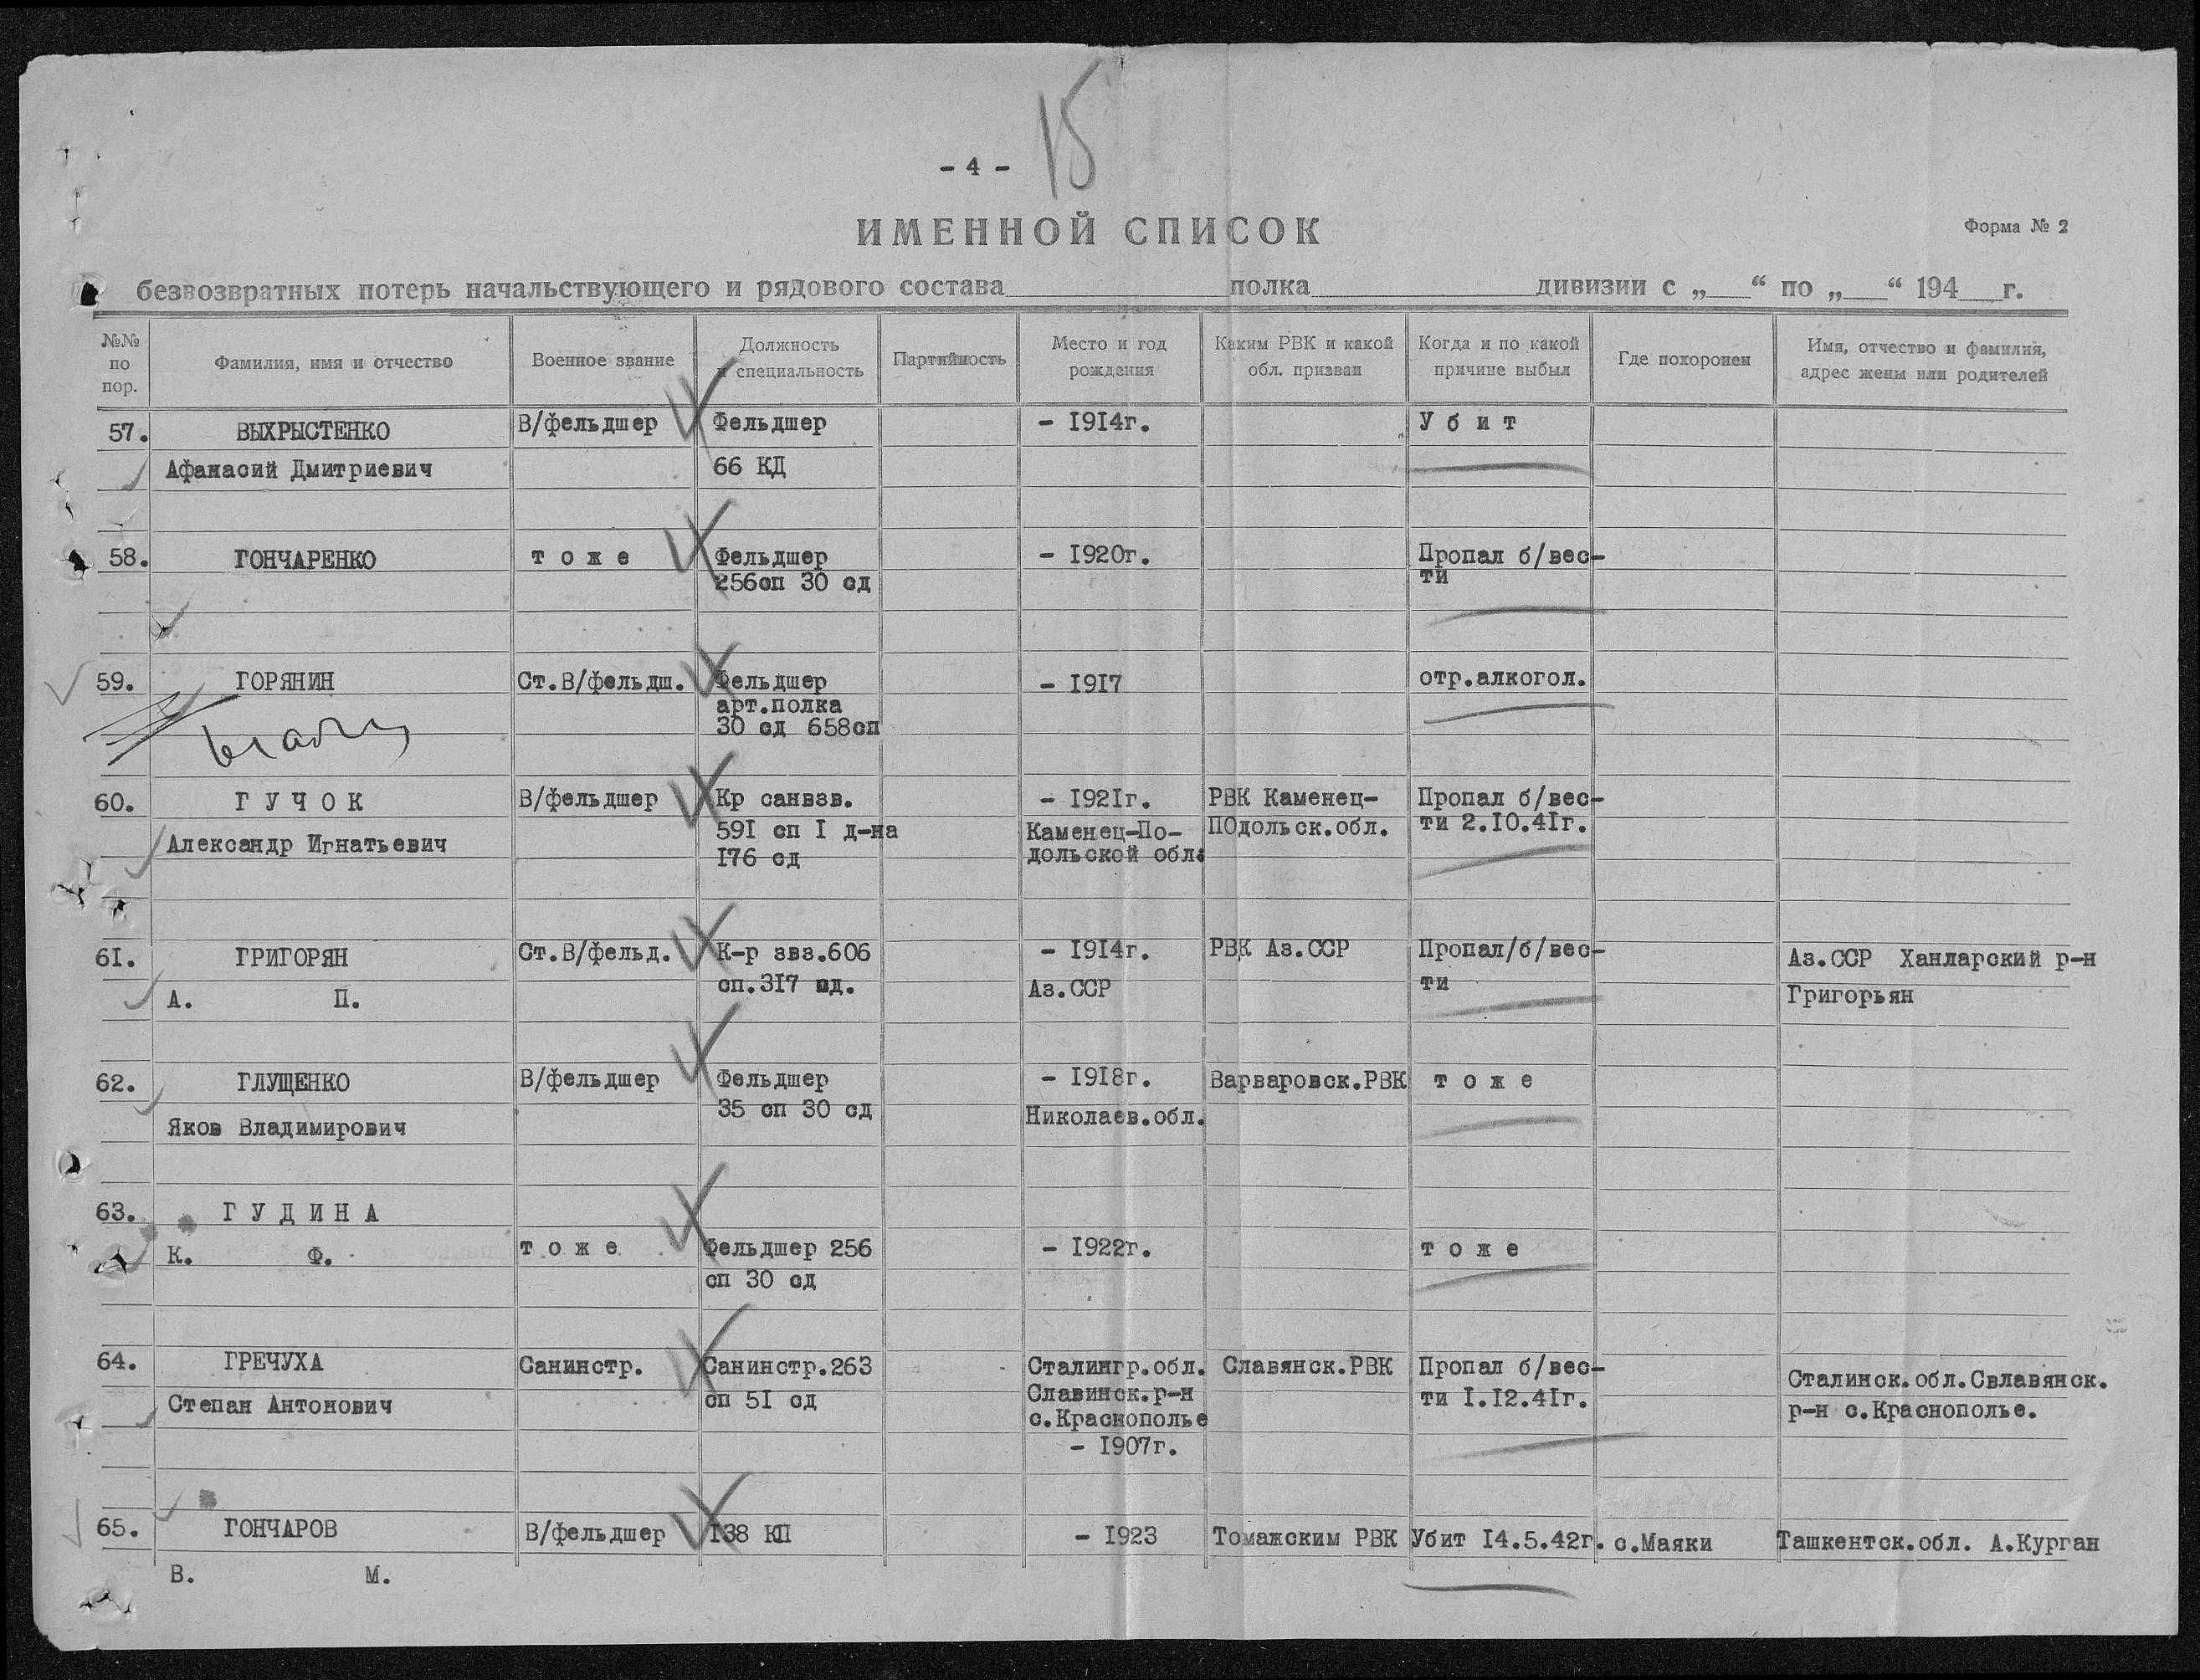 15
- 4 -
ИМЕННОЙ СПИСОК
Форма № 2
безвозвратных потерь начальствующего и рядового состава полка дивизии с „ “ по „ “ 194 г.
№№ по пор.
Фамилия, имя и отчество
Военное звание
Должность и специальность
Партийность
Место и год рождения
Каким РВК и какой обл. призван
Когда и по какой причине выбыл
Где похоронен
Имя, отчество и фамилия, адрес жены или родителей
57. ВЫХРЫСТЕНКО В/фельдшер Фельдшер - 1914г. У б и т
Афанасий Дмитриевич 66 КД
58. ГОНЧАРЕНКО т о ж е Фельдшер - 1920г. Пропал б/вес-
256сп 30 сд ти
59. ГОРЯНИН Ст.В/фельдш. Фельдшер - 1917 отр.алкогол.
арт.полка
30 сд 658сп
60. Г У Ч О К В/фельдшер Кр санвзв. - 1921г. РВК Каменец- Пропал б/вес-
Александр Игнатьевич 591 сп 1 д-на Каменец-По- ПОдольск.обл. ти 2.10.41г.
176 сд дольской обл.
61. ГРИГОРЯН Ст.В/фельд. К-р звз.606 - 1914г. РВК Аз.ССР Пропал/б/вес- Аз.ССР Ханларский р-н
А. П. сп.317 сд. Аз.ССР ти Григорьян
62. ГЛУЩЕНКО В/фельдшер Фельдшер - 1918г. Варваровск.РВК т о ж е
Яков Владимирович 35 сп 30 сд Николаев.обл.
63. Г У Д И Н А
К. Ф. т о ж е Фельдшер 256 - 1922г. т о ж е
сп 30 сд
64. ГРЕЧУХА Санинстр. Санинстр.263 Сталингр.обл. Славянск.РВК Пропал б/вес- Сталинск.обл.Свлавянск.
Степан Антонович сп 51 сд Славинск.р-н ти 1.12.41г. р-н с.Краснополье.
с.Краснополье
- 1907г.
65. ГОНЧАРОВ В/фельдшер 138 КП - 1923 Томажским РВК Убит 14.5.42г. с.Маяки Ташкентск.обл. А.Курган
В. М.